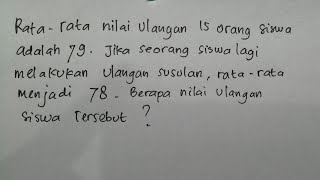 Rata-rata nilai Ulangan 15 orang siswa
adalah 79. Jika seorang siswa lagi
melakukan Ulangan susulan, rata-rata
menjadi 78. Berapa nilai ulangan
siswa Tersebut ?